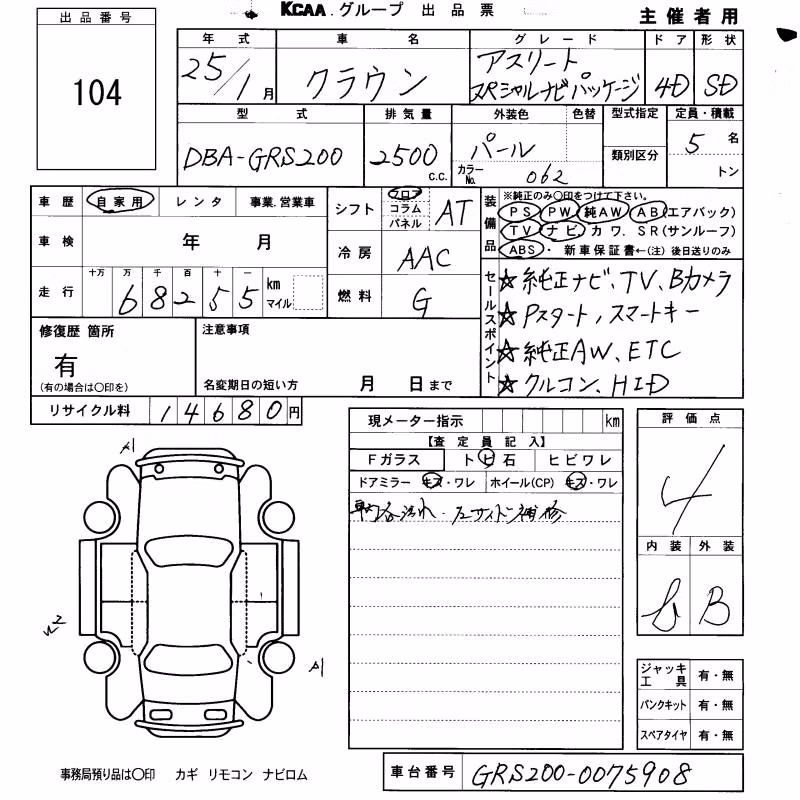 KCAA.グループ 出品票
主催者用
出品番号
104
年式 車名 グレード ドア 形状
25/1月 クラウン アスリート スペシャルナビパッケージ 4D SD
型式 排気量 外装色 色替 型式指定 定員・積載
DBA-GRS200 2500 c.c. パール 類別区分 5名
カラーNo. 062 トン
車歴 自家用 レンタ 事業.営業車
シフト フロア コラム パネル AT
装備品 ※純正のみ〇印をつけて下さい。
PS PW 純AW AB(エアバック)
TV ナビ. カワ. SR(サンルーフ)
ABS・ 新車保証書←(注) 後日送りのみ
車検 年 月
冷房 AAC
走行 十万 万 千 百 十 一
68255 km マイル
燃料 G
セールスポイント
☆純正ナビ、TV、Bカメラ
☆Pスタート、スマートキー
☆純正AW、ETC
☆クルコン、HID
修復歴 箇所
有
(有の場合は〇印を)
注意事項
名変期日の短い方 月 日まで
リサイクル料 14680円
現メーター指示 km
【査定員記入】
Fガラス トビ石 ヒビワレ
ドアミラー キズ・ワレ ホイール(CP) キズ・ワレ
左サイド補修
評価点
4
内装 外装
B
A1
A1
ジャッキ工具 有・無
パンクキット 有・無
スペアタイヤ 有・無
事務局預り品は〇印 カギ リモコン ナビロム
車台番号 GRS200-0075908